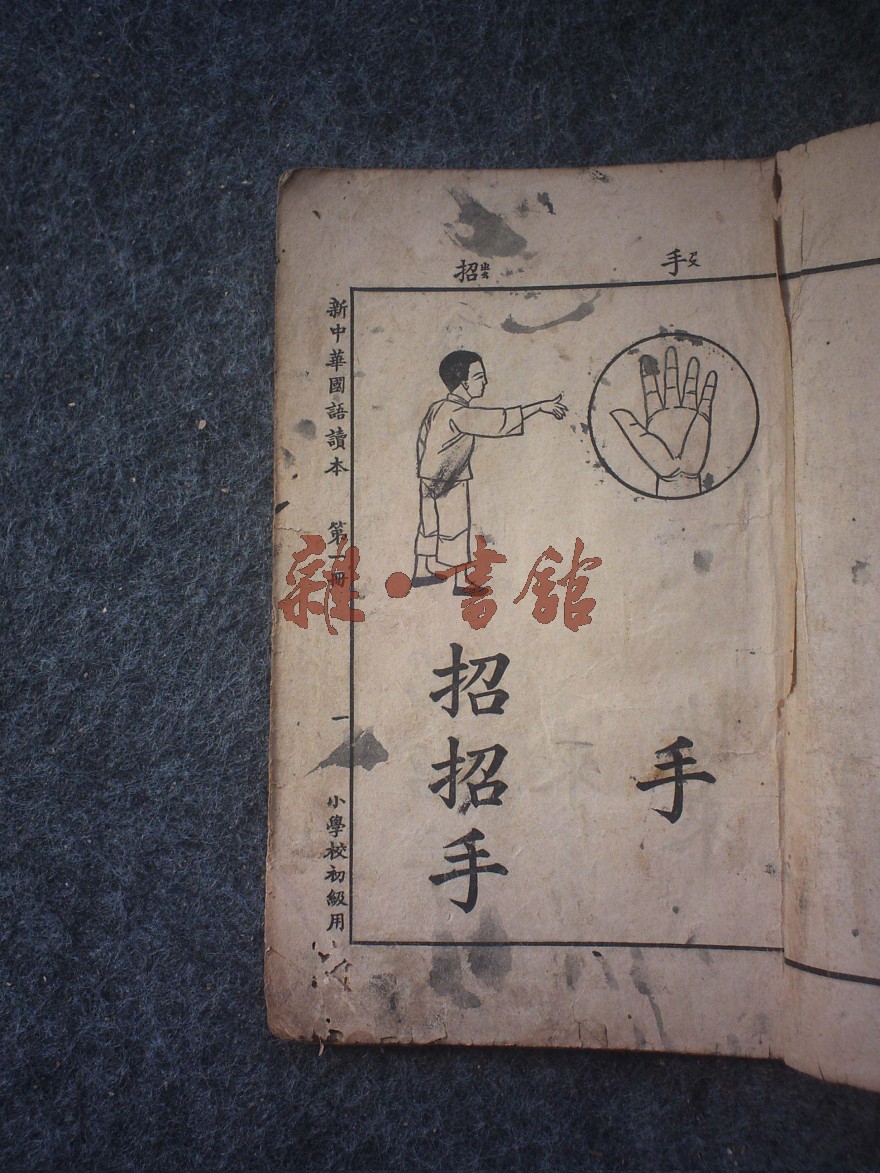 手ㄕㄡ
招ㄓㄠ
手
招招手
新中華國語讀本 第一冊 一 小學校初級用
雜·書館